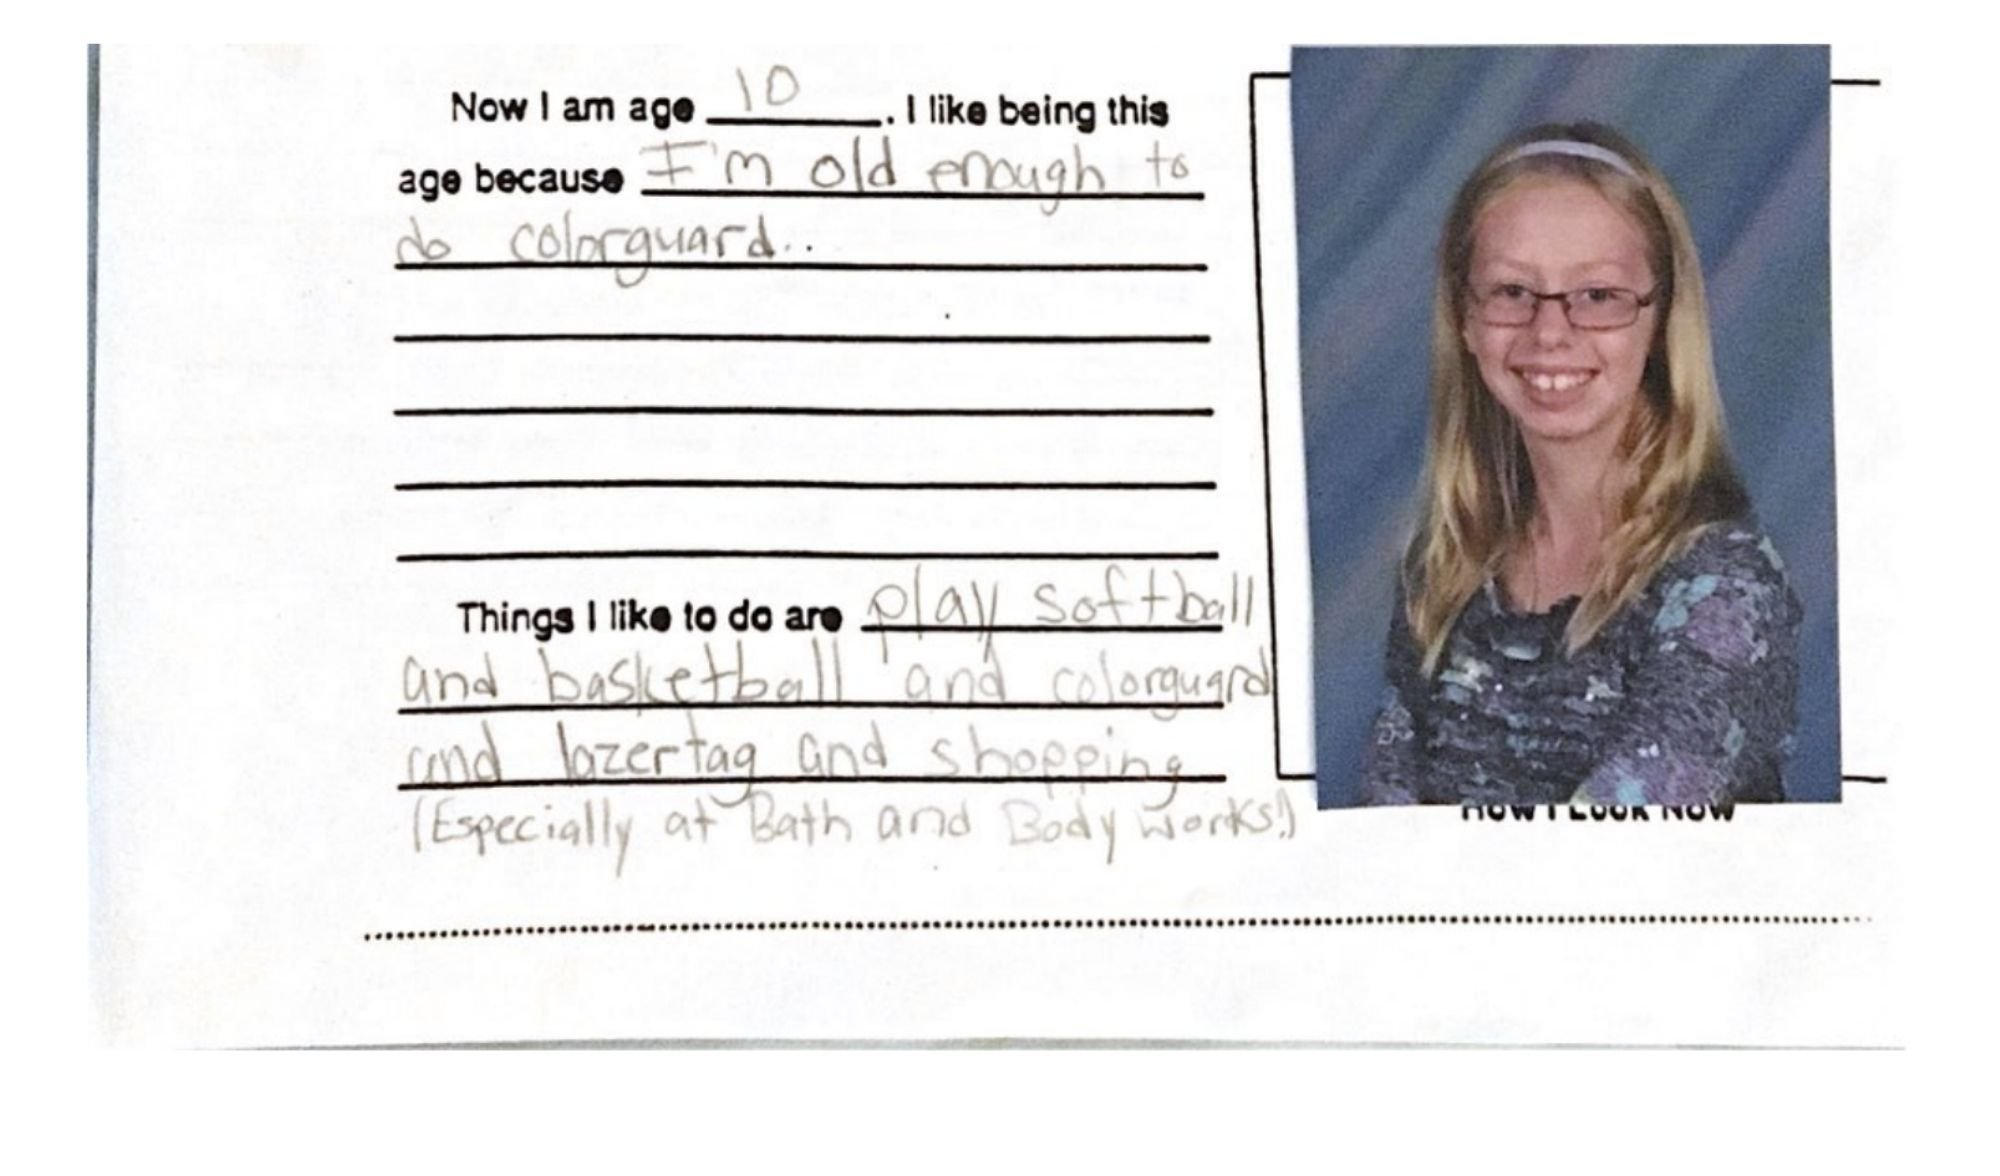 Now I am age 10. I like being this
age because I'm old enough to
do colorguard..
Things I like to do are play softball
and basketball and colorguard
and lazertag and shopping
(Especially at Bath and Body works!)
How I Look Now